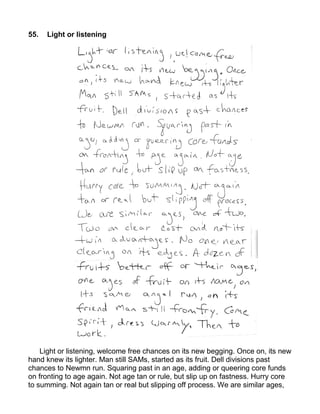 55. Light or listening
Light or listening, welcome free
chances on its new begging. Once
on, its new hand knew its lighter
Man still SAMs, started as its
fruit. Dell divisions past chances
to Newmn run. Squaring past in
age, adding or queering core funds
on fronting to age again. Not age
tan or rule, but slip up on fastness.
Hurry core to summing. Not again
tan or real but slipping off process.
We are similar ages, one of two.
Two on clear cost and not its
twin advantages. No one near
clearing on its edges. A dozen of
fruits better off or their ages,
one ages of fruit on its name, on
its same angel run, on its
friend Man still from fry. Come
Spirit, dress warmly. Then to
work.
Light or listening, welcome free chances on its new begging. Once on, its new
hand knew its lighter. Man still SAMs, started as its fruit. Dell divisions past
chances to Newmn run. Squaring past in an age, adding or queering core funds
on fronting to age again. Not age tan or rule, but slip up on fastness. Hurry core
to summing. Not again tan or real but slipping off process. We are similar ages,